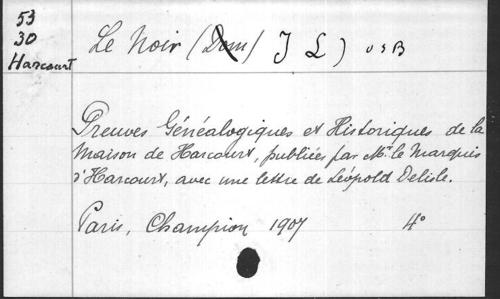 53
30
Harcourt
Le Noir (Dom) J L) OSB
Preuves Généalogiques et Historiques de la
Maison de Harcourt, publiées par Mr. le Marquis
d'Harcourt, avec une lettre de Léopold Delisle.
Paris, Champion 1907 4°